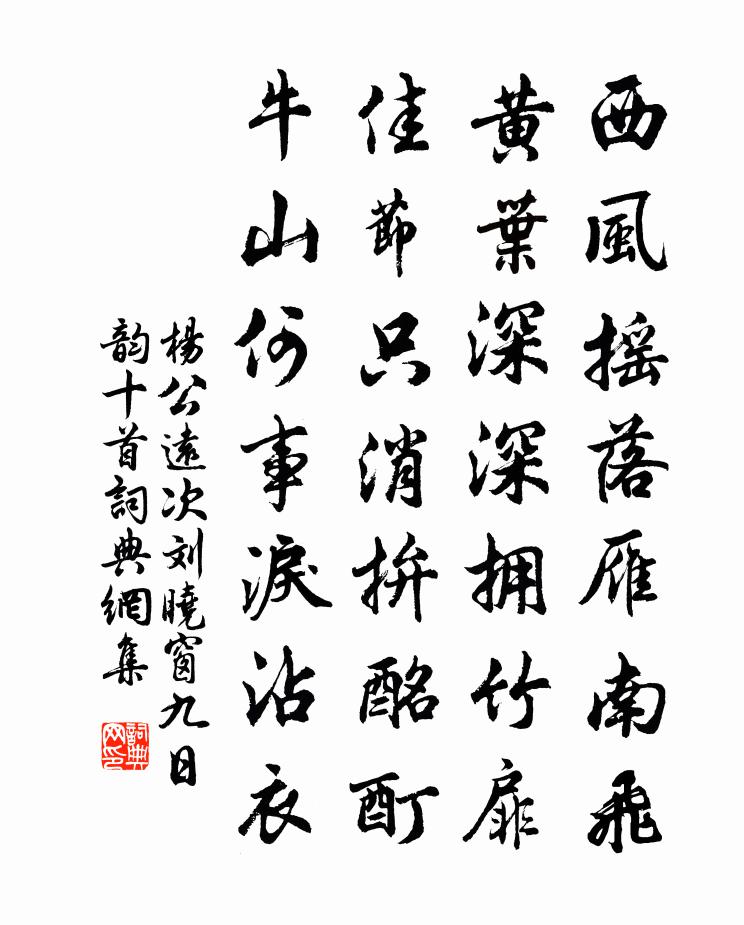 西風摇落雁南飛
黄葉深深拥竹扉
佳節只消拚酩酊
牛山何事淚沾衣
楊公遠次刘曉窗九日
韵十首詞典網集
詞典
网印